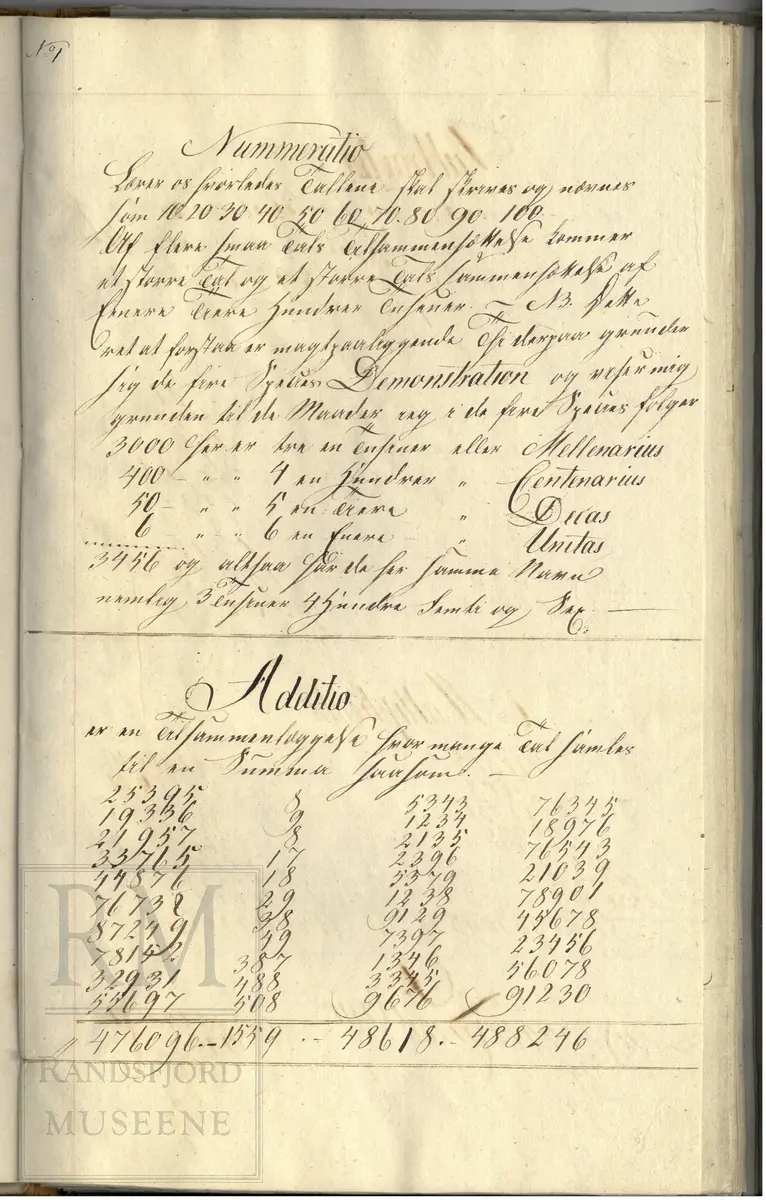 No 1
Nummeratio
Lærer os hvorledes Tallene skal skrives og nævnes
som 10. 20. 30. 40. 50. 60. 70. 80. 90. 100.
Af flere smaa Tals Tilsammensættelse kommer
et større Tal og et større Tals sammensættelse af
Enere Tiere Hundrer Tusener. — NB. Dette
ret at forstaa er magtpaaliggende Thi derpaa grunder
sig de fire Species Demonstration og viser mig
grunden til de Maader ieg i de fire Species følger
3000 Her er tre en Tusener eller Mellenarius
400 — " " 4 en Hundrer " Centenarius
50 — " " 5 en Tiere " Decas
6 " " 6 en Enere — " Unitas
3456 og altsaa har de her samme Navn
nemlig 3 Tusener 4 Hundre Femti og Sex. —
Additio
er en Tilsammenlæggelse hvor mange Tal samles
til en Summa saasom. —
25395 8 5343 76345
19336 9 1234 18976
21957 8 2135 76543
33765 17 2396 21039
44876 18 5379 78901
76738 29 1238 45678
87249 38 9129 23456
78152 49 7397 56078
32931 387 1346 91230
55697 488 3345
508 9676
476096.—1559 .— 48618.— 488246
RM
RANDSFJORD
MUSEENE